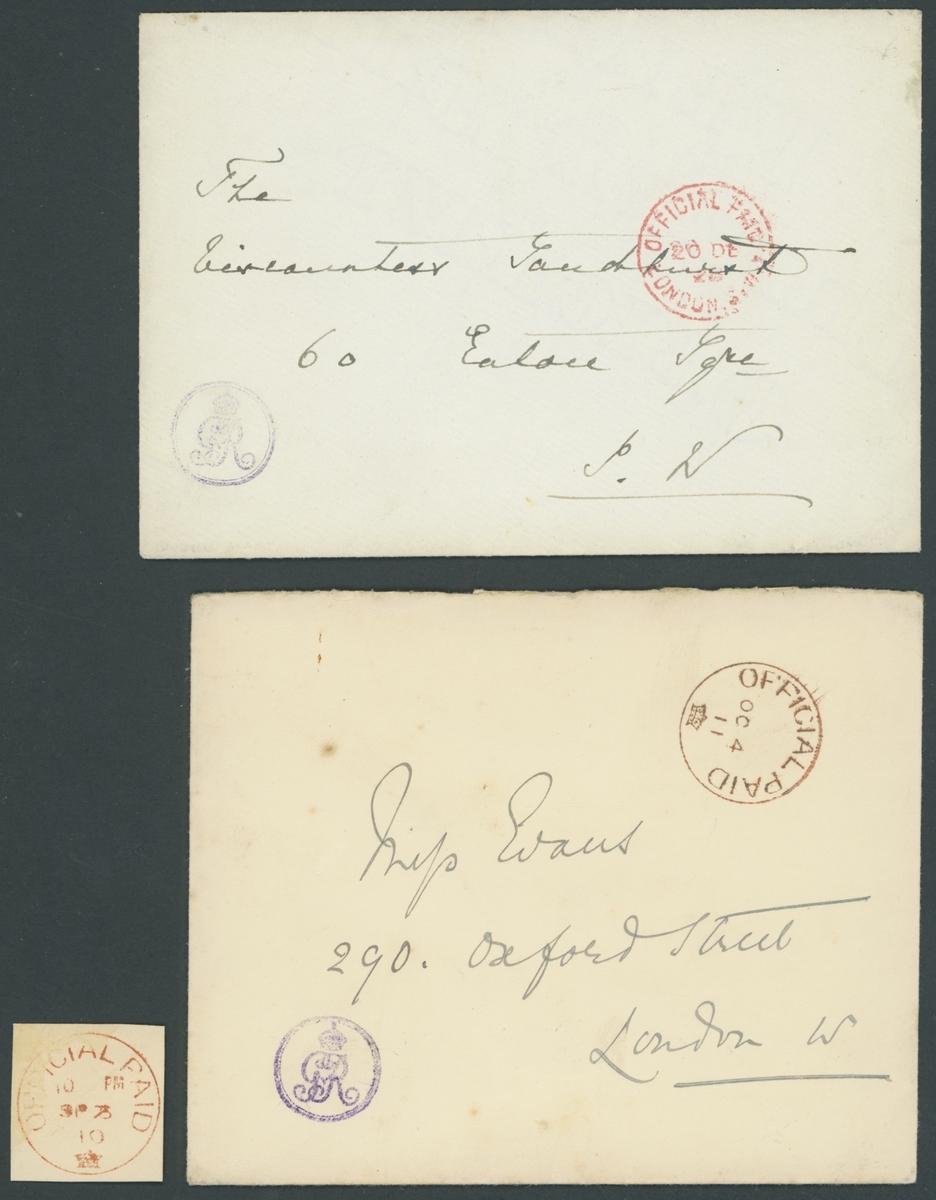 The
Viscountess Sandhurst
60 Eaton Sqre
S. W
OFFICIAL PAID
20 DE
LONDON
GR
OFFICIAL PAID
OC 4
11
Miss Evans
290. Oxford Street
London W
GR
OFFICIAL PAID
10 PM
SP
10